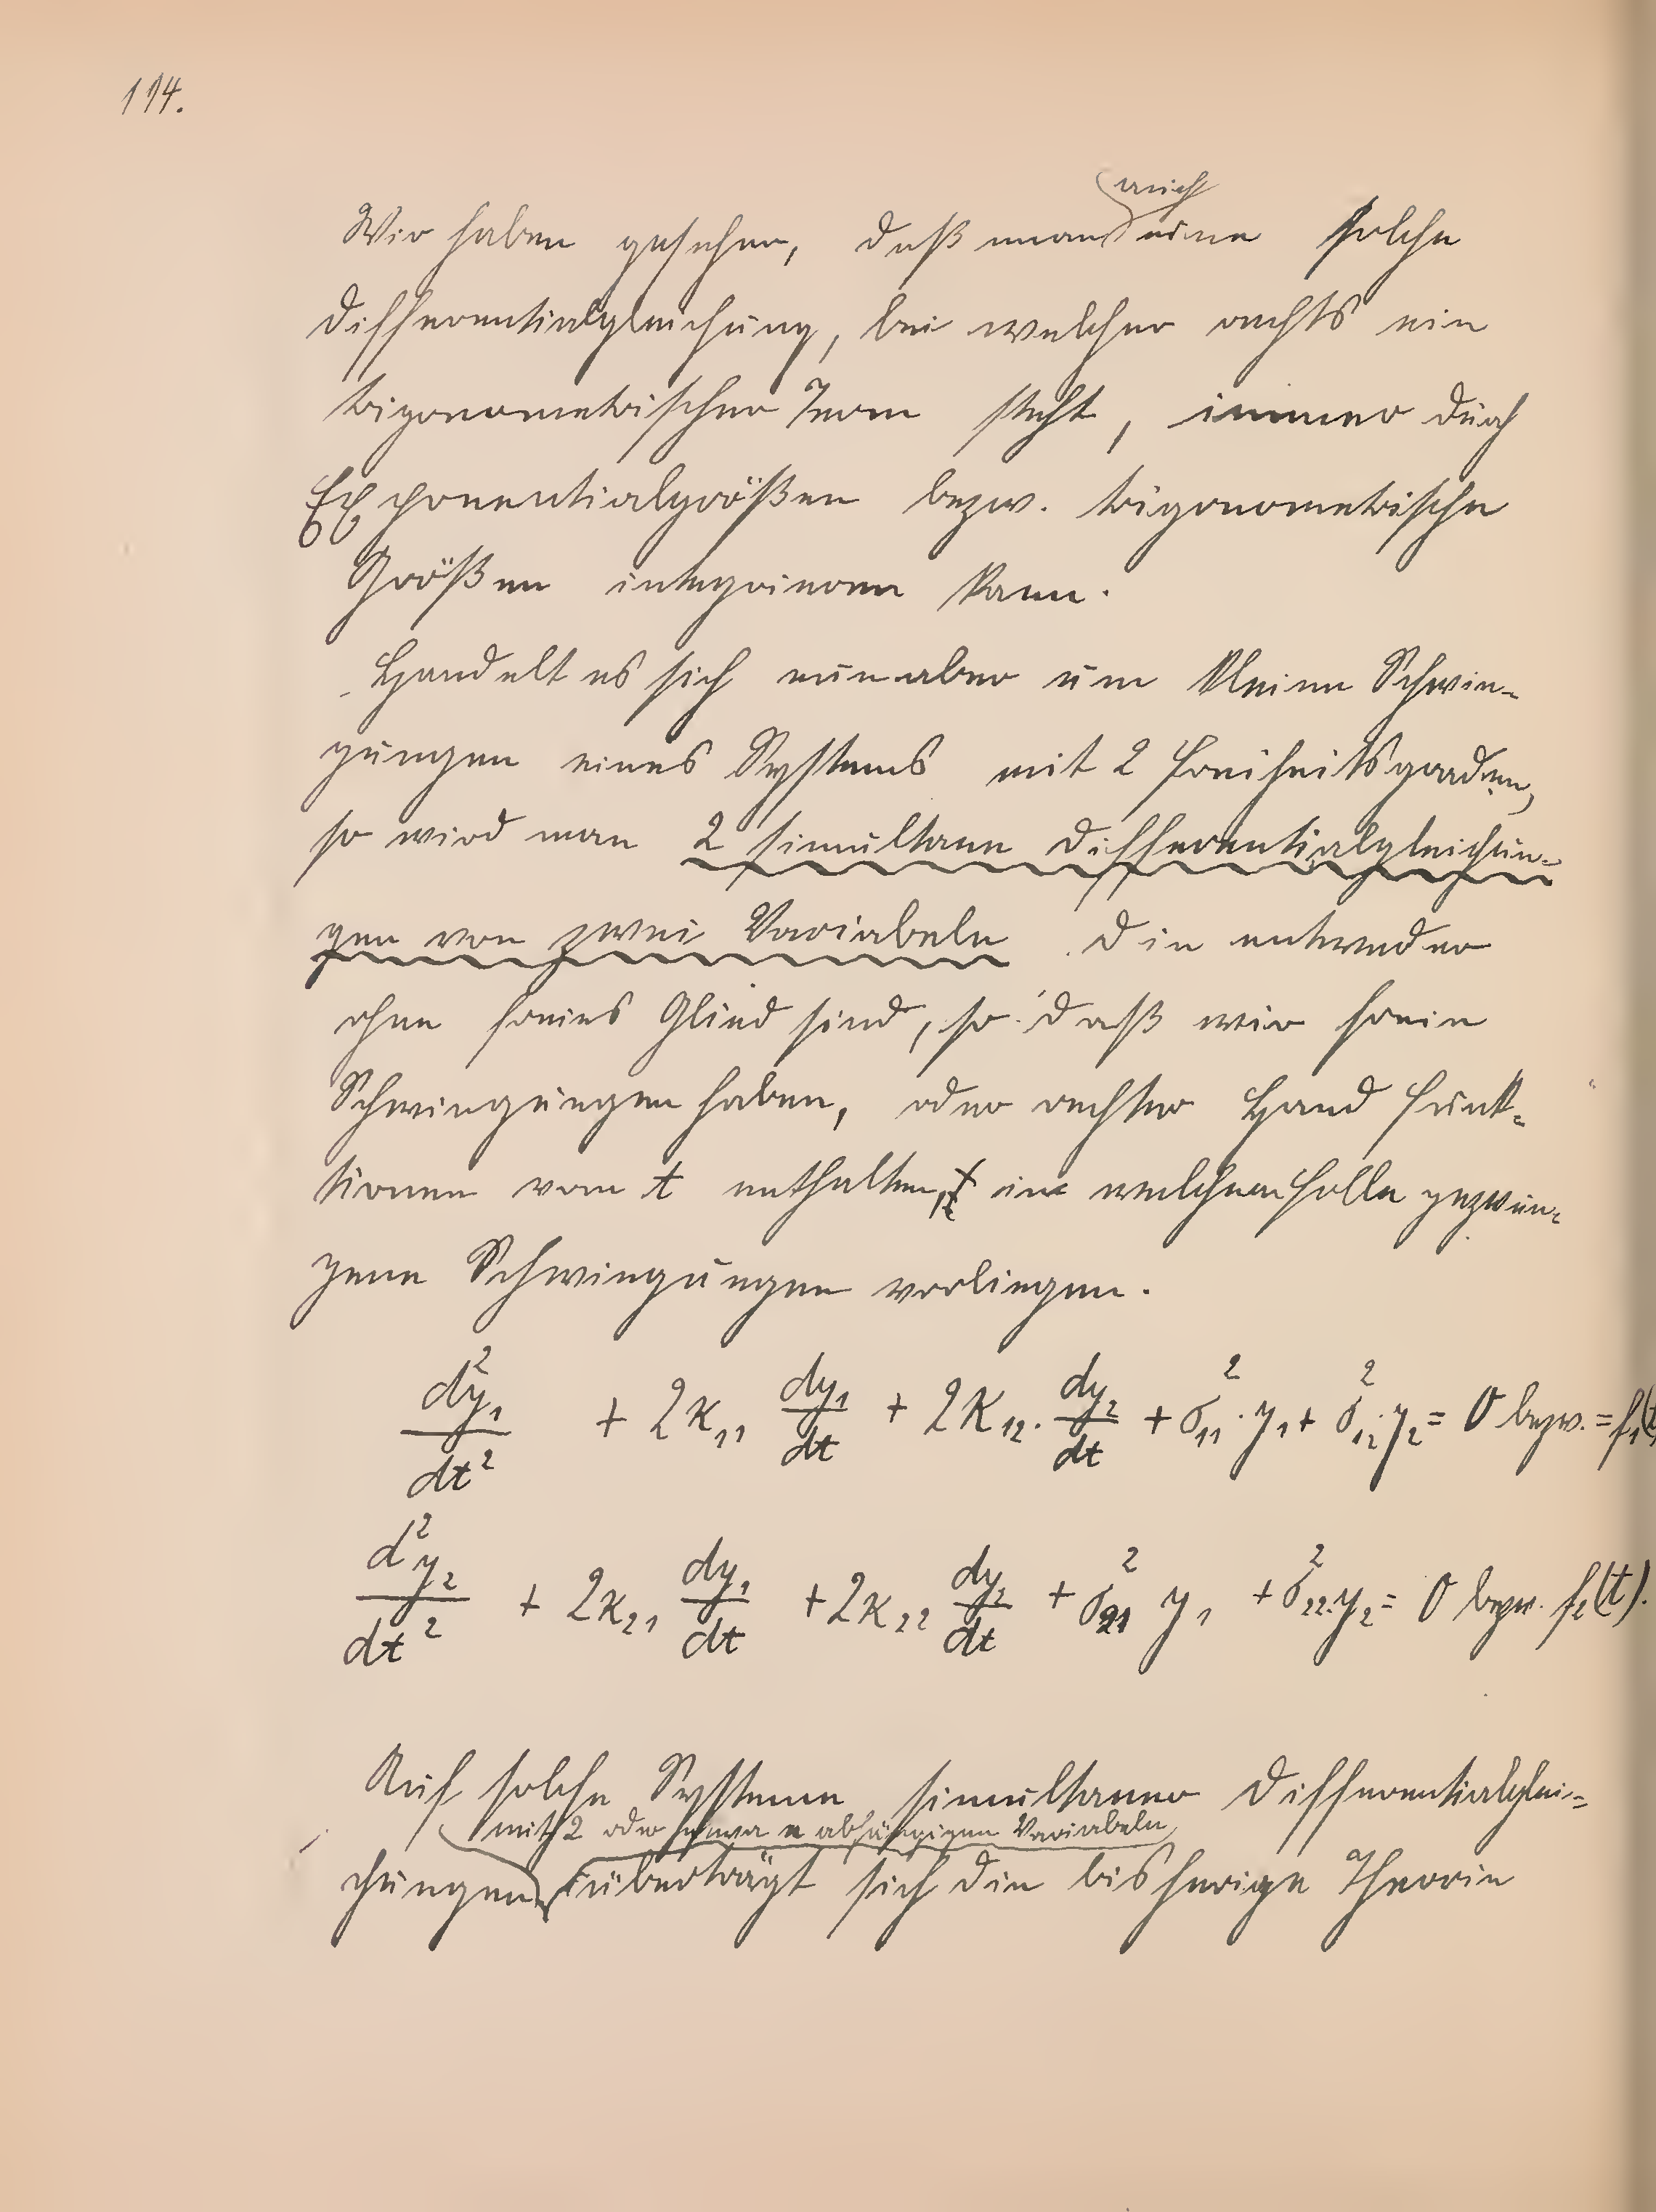 114.
auch
Wir haben gesehen, daß man eine solche
Differentialgleichung, bei welcher rechts ein
trigonometrischer Term steht, immer durch
Exponentialgrößen bezw. trigonometrische
Größen integrieren kann.
Handelt es sich nun aber um kleine Schwin-
gungen eines Systems mit 2 Freiheitsgraden,
so wird man 2 simultane Differentialgleichun-
gen von zwei Variabeln die entweder
ohne freies Glied sind, so daß wir freie
Schwingungen haben, oder rechter Hand Funk-
tionen von t enthalten, in welchem Falle gezwun-
gene Schwingungen vorliegen.
d²y₁/dt² + 2κ₁₁ dy₁/dt + 2κ₁₂ · dy₂/dt + σ₁₁² · y₁ + σ₁₂² · y₂ = 0 bezw. = f₁(t)
d²y₂/dt² + 2κ₂₁ dy₁/dt + 2κ₂₂ dy₂/dt + σ₂₁² y₁ + σ₂₂² · y₂ = 0 bezw. f₂(t).
Auf solche Systeme simultaner Differentialglei-
mit 2 oder etwa n abhängigen Variabeln
chungen überträgt sich die bisherige Theorie